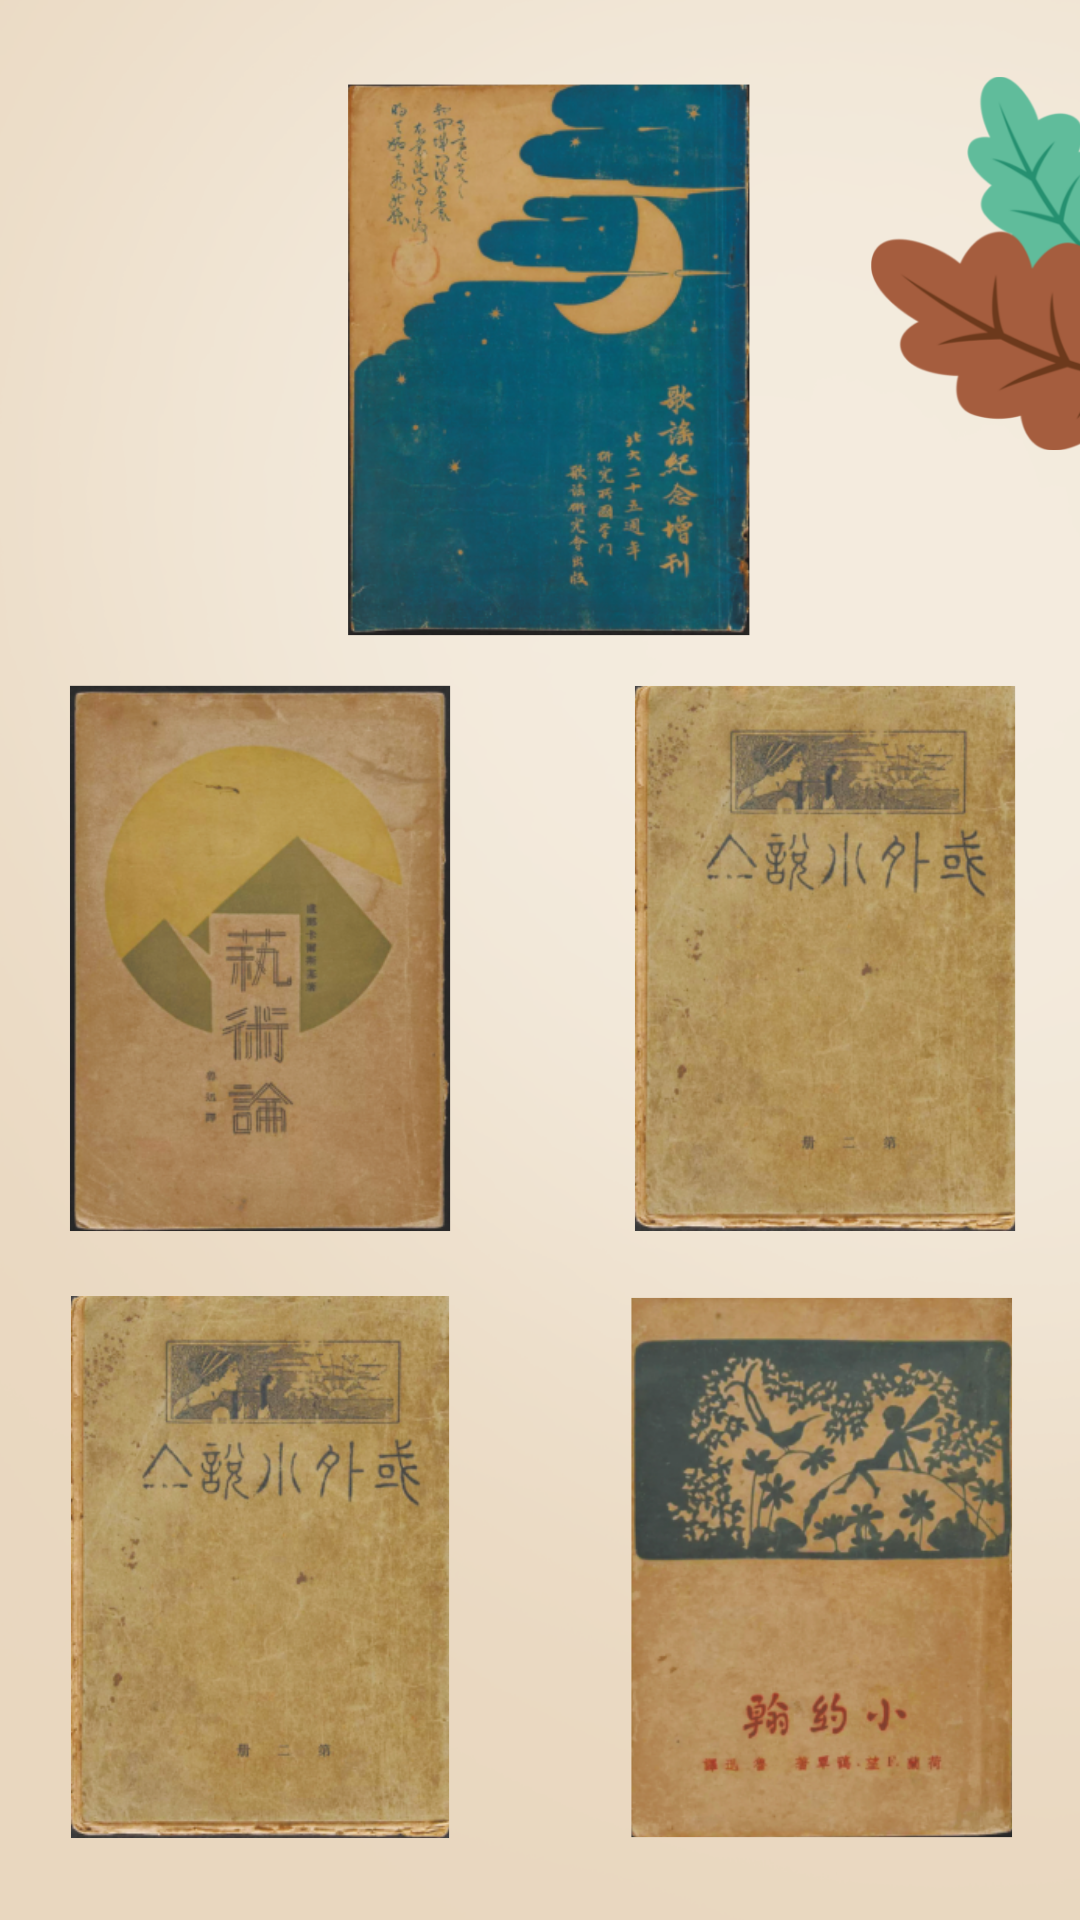 歌謠紀念增刊
北大二十五週年
研究所國學門
歌謠研究會出版
盧那卡爾斯基著
蓺術論
魯迅譯
或外小說亼
第二册
或外小說亼
第二册
小約翰
荷蘭.F.望.藹覃著 魯迅譯